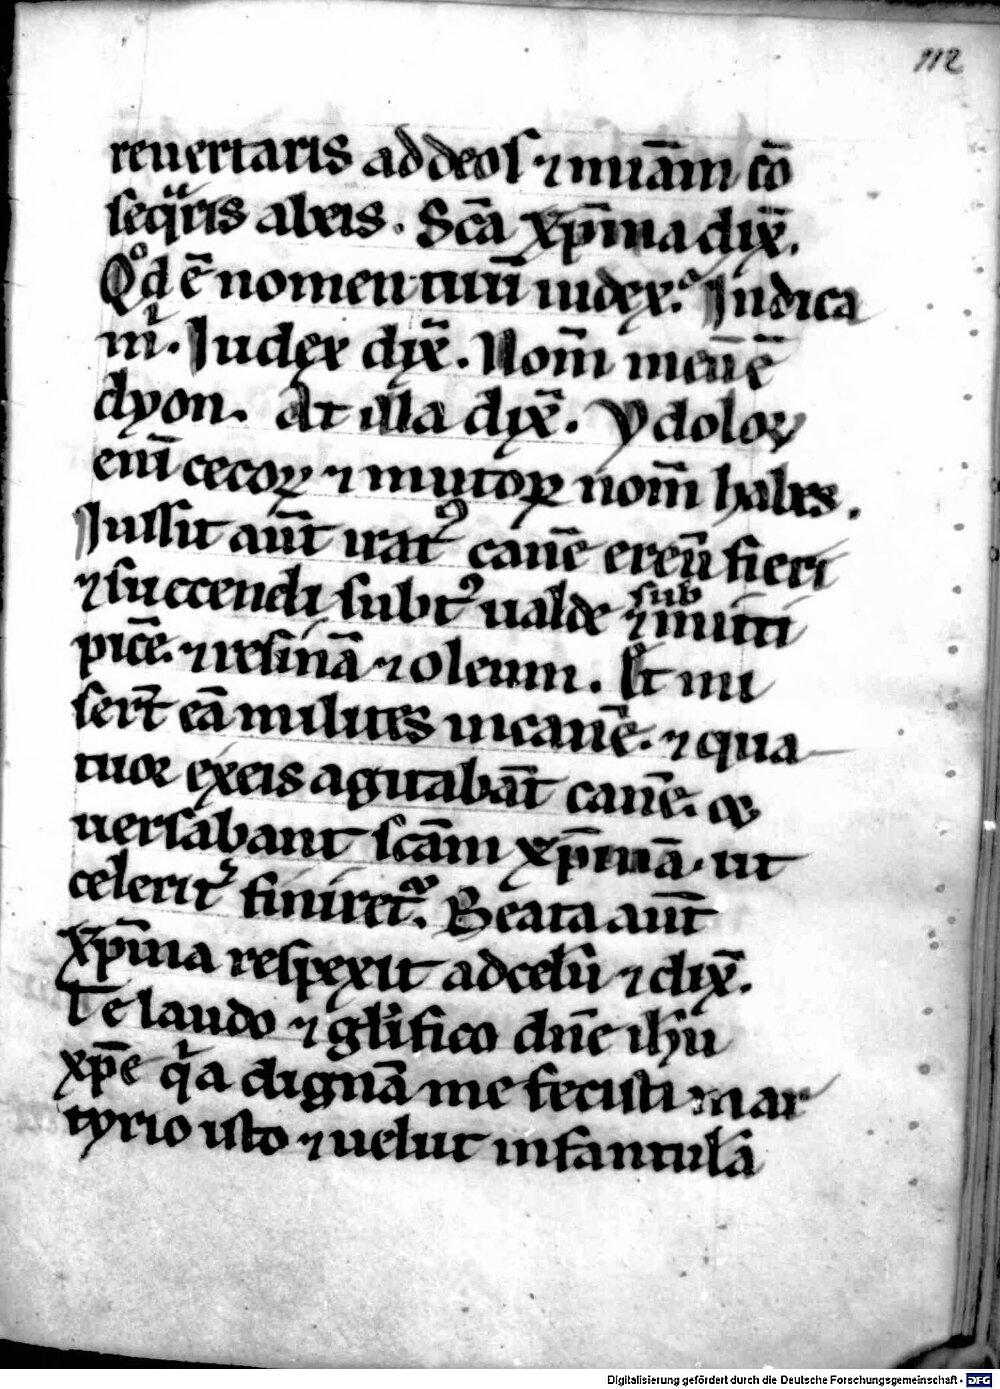 112
reuertaris ad deos ⁊ ueniam cō
seqͣris ab eis . Scā xp̄ina dix̄.
Qͦd ē nomen tuū iudex. Iudica
mͥ. Iudex dix̄. Nom̄ meū ē
dyon. At illa dix̄. Ydoloꝝ
enī cecoꝝ ⁊ mutoꝝ nom̄ habes .
Iussit aūt iratꝰ cauē ereū fieri
⁊ succendi subtꝰ ualde ⁊ sub mitti
picē. ⁊ resinā ⁊ oleum . Et mi
serūt eā milites in cauē. ⁊ qua
tuor ex eis agitabāt cauē. ⁊
uersabant scām xp̄inā. ut
celeritͬ finiretᷣ. Beata aūt
xp̄ina respexit ad celū ⁊ dix̄.
Te laudo ⁊ glīfico dn̄e ih̄u
xp̄e qͥa dignā me fecisti mar
tyrio isto ⁊ uelut infantulā
Digitalisierung gefördert durch die Deutsche Forschungsgemeinschaft - DFG